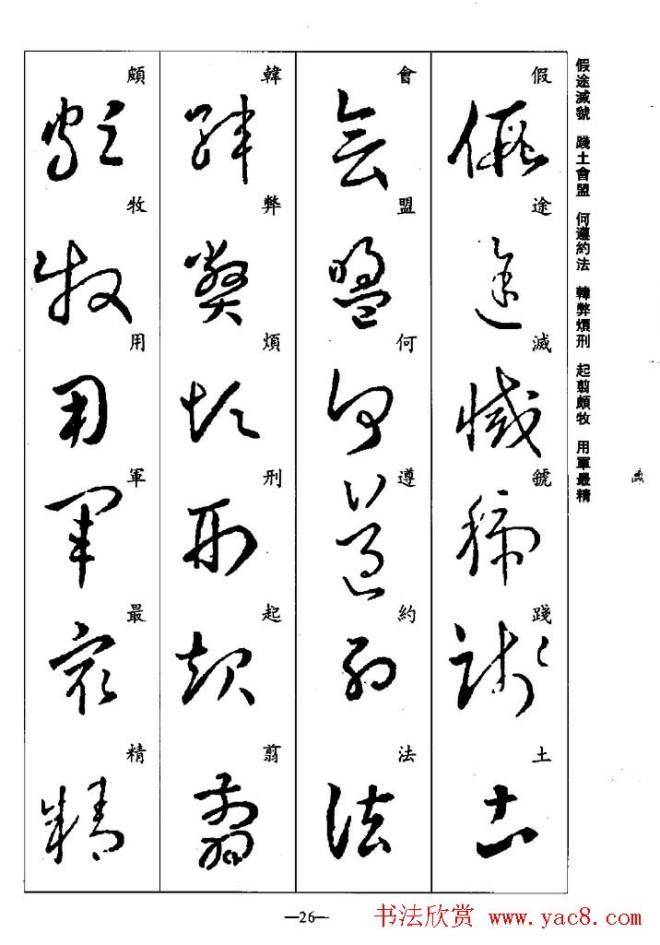 假途滅號　踐土會盟　何遵約法　韓弊煩刑　起翦頗牧　用軍最精
假途滅號踐土
會盟何遵約法
韓弊煩刑起翦
頗牧用軍最精
—26—
书法欣赏 www.yac8.com